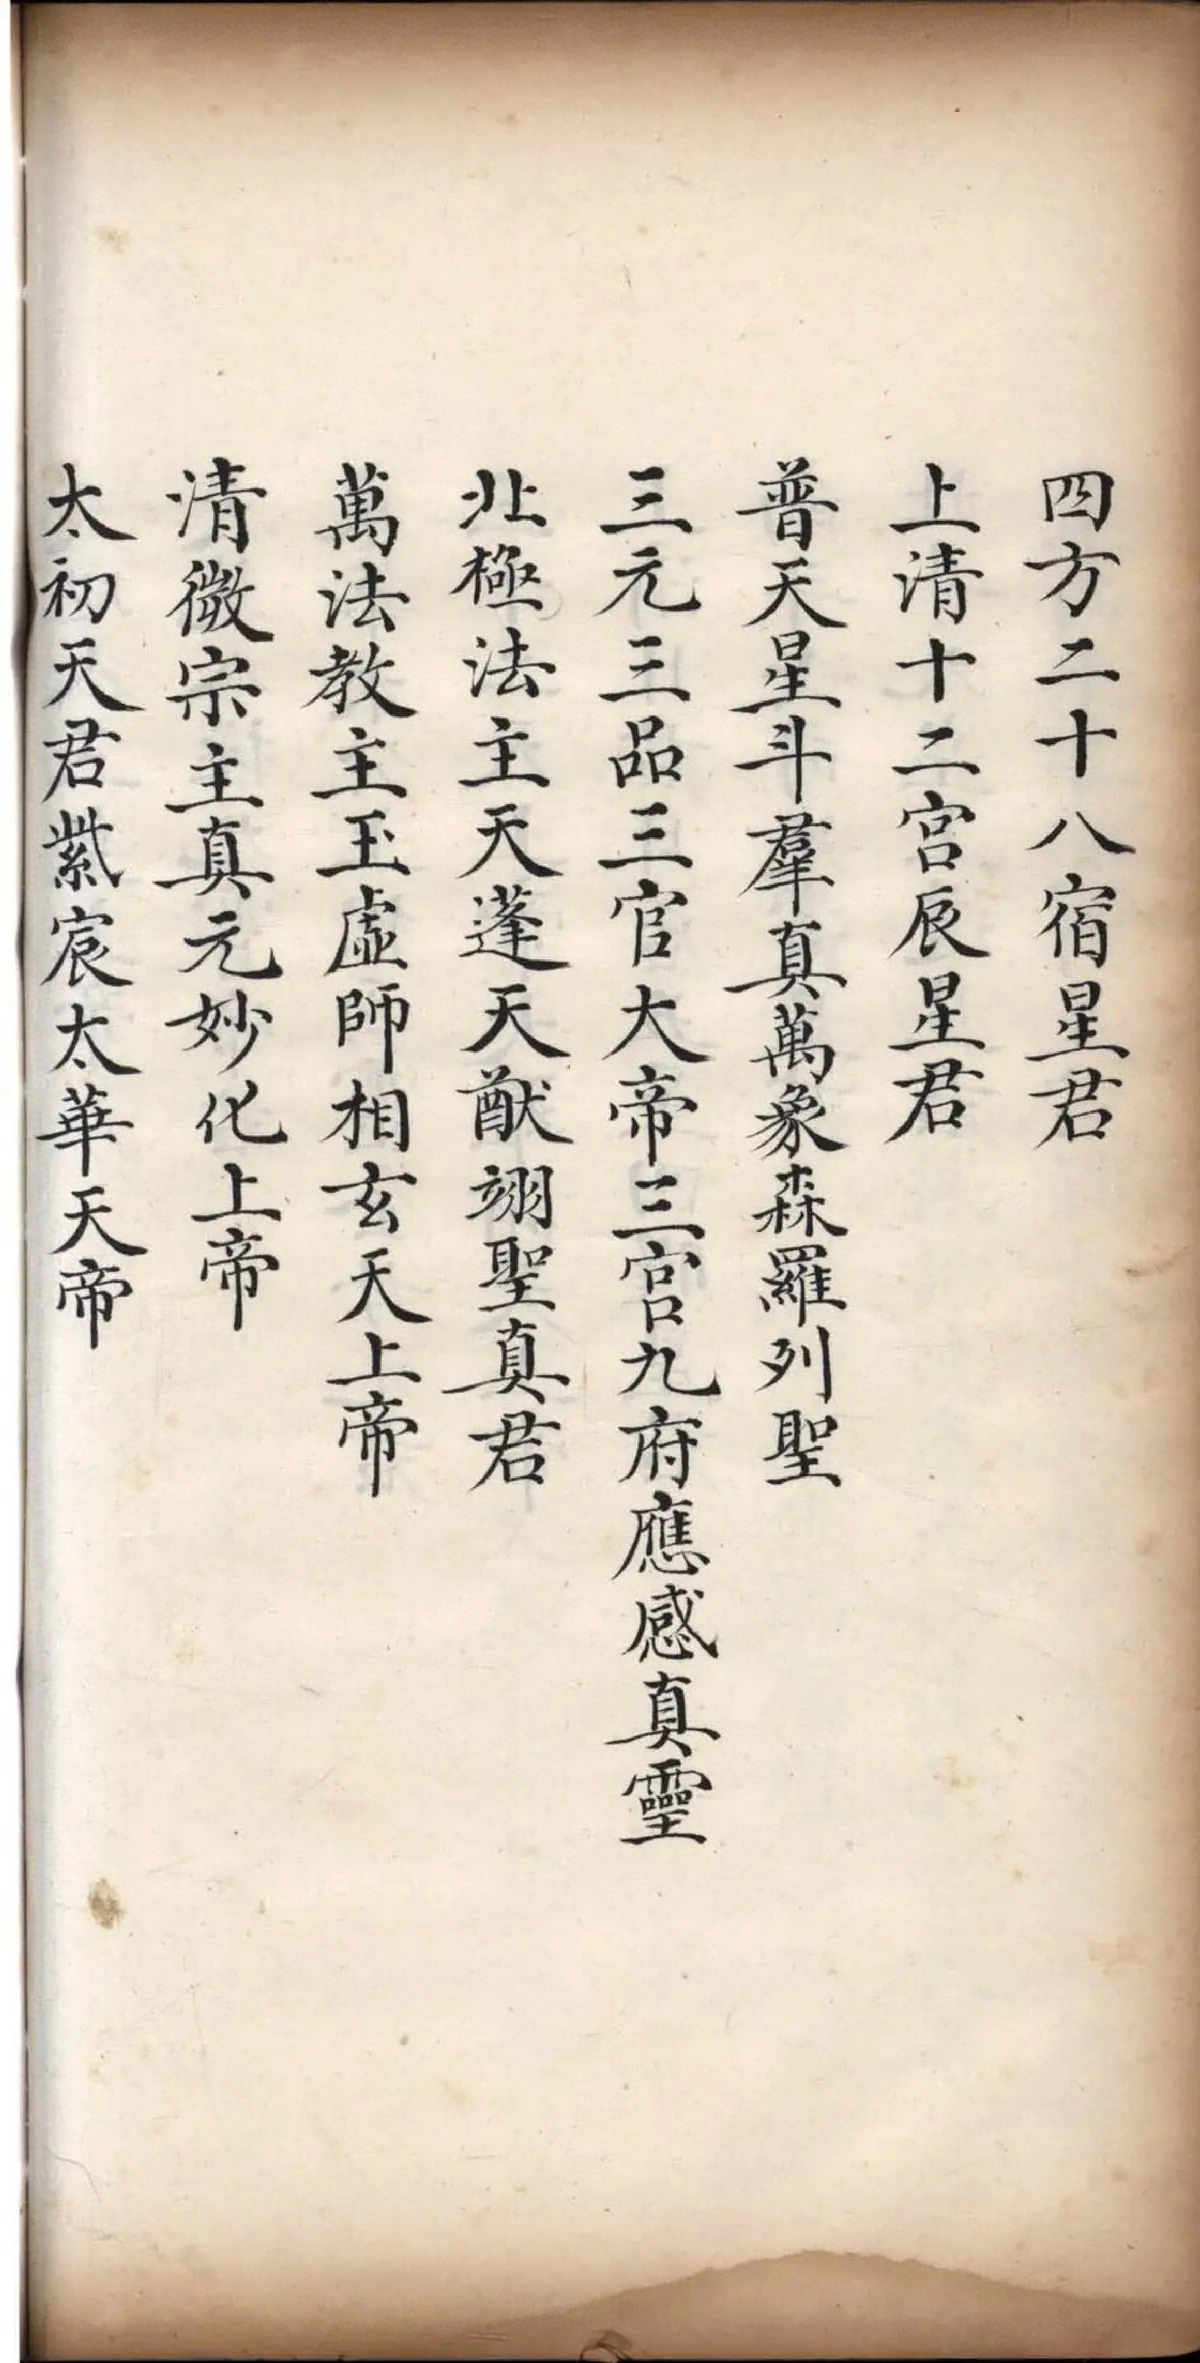 四方二十八宿星君
上清十二宮辰星君
普天星斗羣真萬象森羅列聖
三元三品三官大帝三宮九府應感真靈
北極法主天蓬天猷翊聖真君
萬法教主玉虛師相玄天上帝
清微宗主真元妙化上帝
太初天君紫宸太華天帝